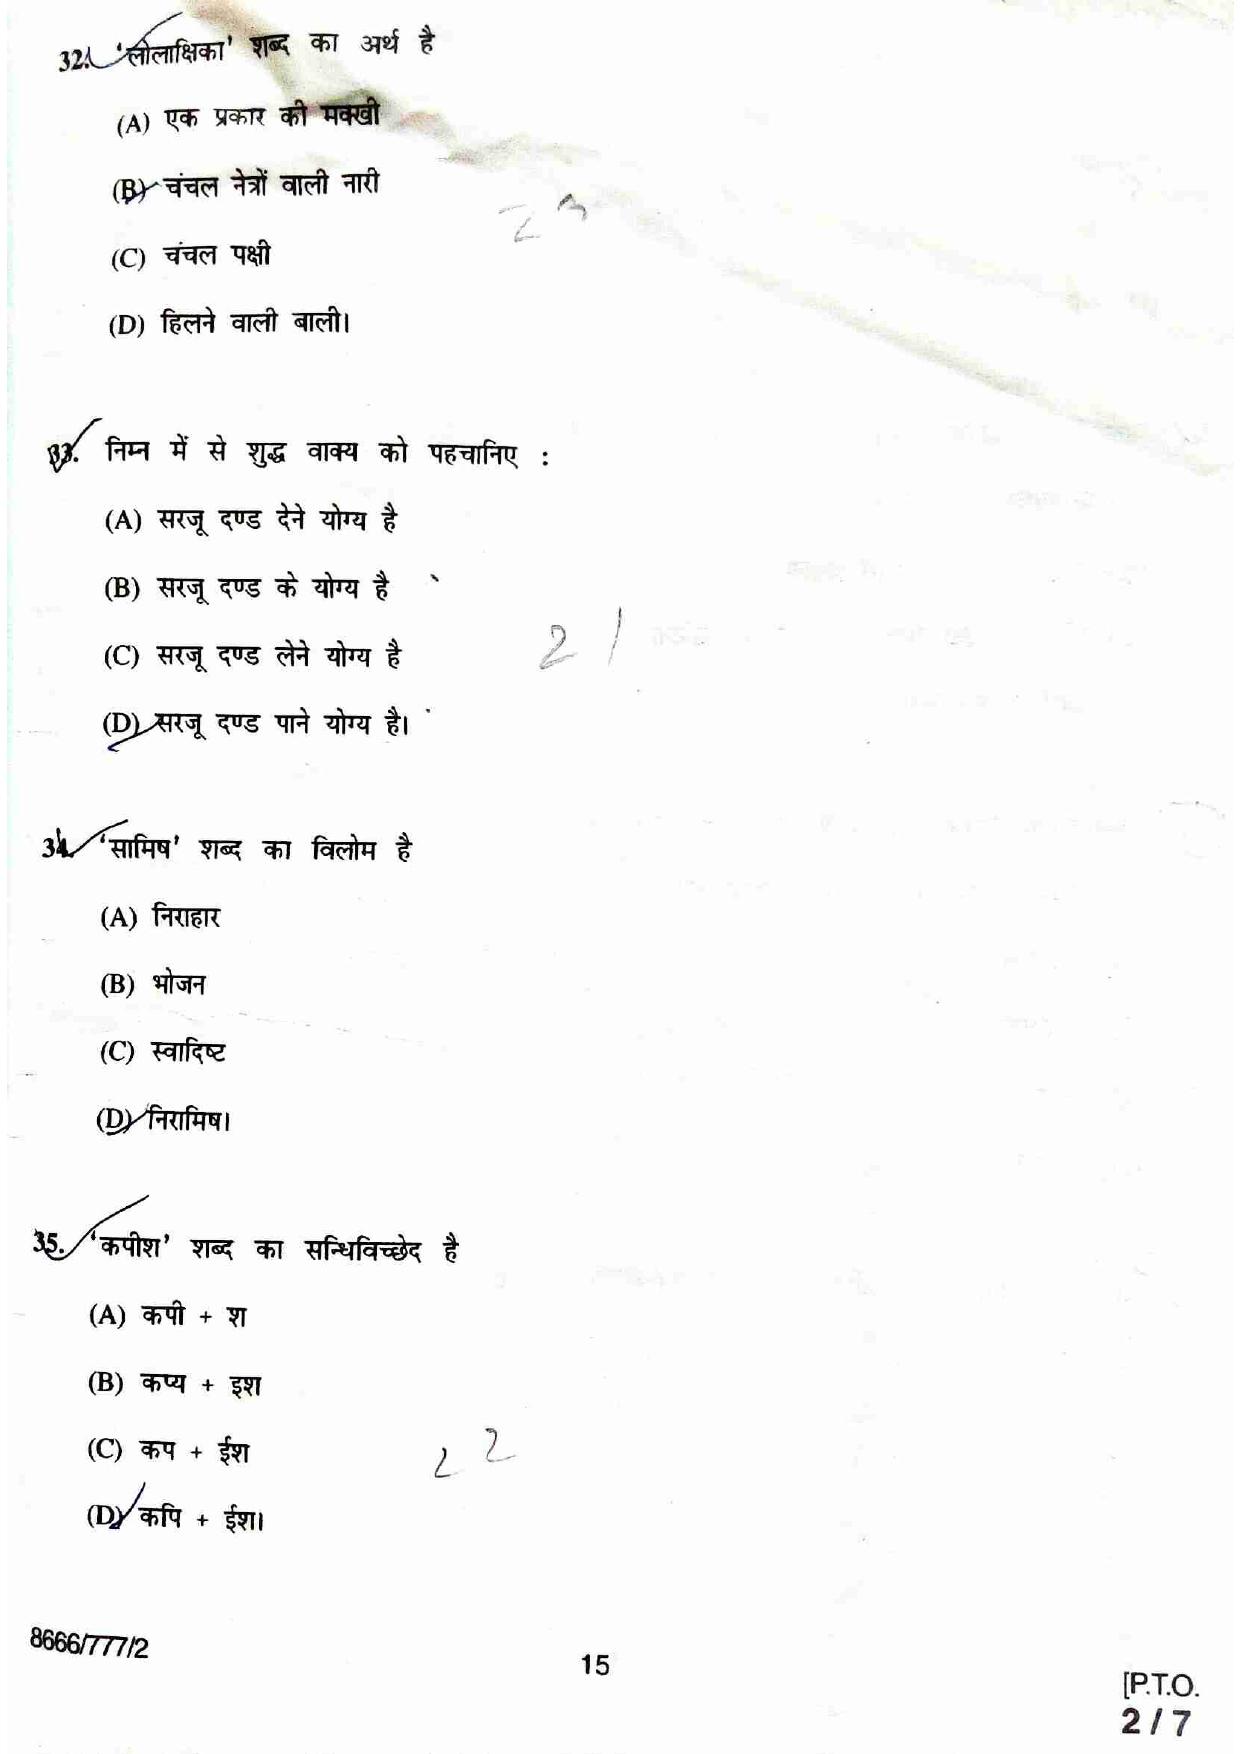 32. 'लोलाक्षिका' शब्द का अर्थ है
(A) एक प्रकार की मक्खी
(B) चंचल नेत्रों वाली नारी
(C) चंचल पक्षी
(D) हिलने वाली बाली।
33. निम्न में से शुद्ध वाक्य को पहचानिए :
(A) सरजू दण्ड देने योग्य है
(B) सरजू दण्ड के योग्य है
21
(C) सरजू दण्ड लेने योग्य है
(D) सरजू दण्ड पाने योग्य है।
34. 'सामिष' शब्द का विलोम है
(A) निराहार
(B) भोजन
(C) स्वादिष्ट
(D) निरामिष।
35. 'कपीश' शब्द का सन्धिविच्छेद है
(A) कपी + श
(B) कप्य + इश
(C) कप + ईश
22
(D) कपि + ईश।
8666/777/2
15
[P.T.O.
2 / 7